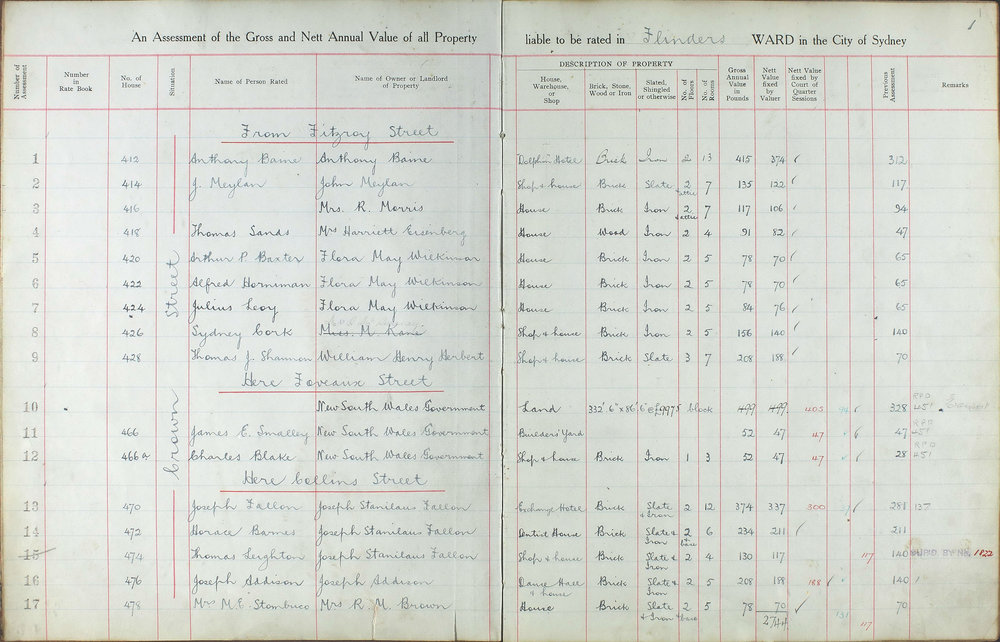 1
An Assessment of the Gross and Nett Annual Value of all Property liable to be rated in Flinders WARD in the City of Sydney
Number of Assessment | Number in Rate Book | No. of House | Situation | Name of Person Rated | Name of Owner or Landlord of Property | DESCRIPTION OF PROPERTY | House, Warehouse, or Shop | Brick, Stone, Wood or Iron | Slated, Shingled or otherwise | No. of Floors | No. of Rooms | Gross Annual Value in Pounds | Nett Value fixed by Valuer | Nett Value fixed by Court of Quarter Sessions | Previous Assessment | Remarks
Crown Street
From Fitzroy Street
1 412 Anthony Baine Anthony Baine Dolphin Hotel Brick Iron 2 13 415 374 312
2 414 J. Meylan John Meylan Shop & house Brick Slate 2 & attic 7 135 122 117
3 416 Mrs. R. Morris House Brick Iron 2 & attic 7 117 106 94
4 418 Thomas Sands Mrs Harriett Eisenberg House Wood Iron 2 4 91 82 47
5 420 Arthur P. Baxter Flora May Wilkinson House Brick Iron 2 5 78 70 65
6 422 Alfred Horniman Flora May Wilkinson House Brick Iron 2 5 78 70 65
7 424 Julius Levy Flora May Wilkinson House Brick Iron 2 5 84 76 65
8 426 Sydney Cork Miss. M. Kane Shop & house Brick Iron 2 5 156 140 140
9 428 Thomas J. Shannon William Henry Herbert Shop & house Brick Slate 3 7 208 188 70
Here Foveaux Street
10 New South Wales Government Land 332' 6" x 86' 6" @ £9975 block 499 499 405 94 328 RPD 451
11 466 James E. Smalley New South Wales Government Builders' Yard 52 47 47 47 RPD 451
12 466a Charles Blake New South Wales Government Shop & house Brick Iron 1 3 52 47 47 28 RPD 451
Here Collins Street
13 470 Joseph Fallon Joseph Stanilaus Fallon Exchange Hotel Brick Slate & Iron 2 12 374 337 300 281 137
14 472 Horace Barnes Joseph Stanilaus Fallon Dentist House Brick Slate & Iron 2 & base 6 234 211 211
15 474 Thomas Leighton Joseph Stanilaus Fallon Shop & house Brick Slate & Iron 2 4 130 117 117 140 1822
16 476 Joseph Addison Joseph Addison Dance Hall & house Brick Slate & Iron 2 5 208 188 188 140
17 478 Mrs M.E. Stombuco Mrs R. M. Brown House Brick Slate & Iron 2 & base 5 78 70 131 70
2744 117